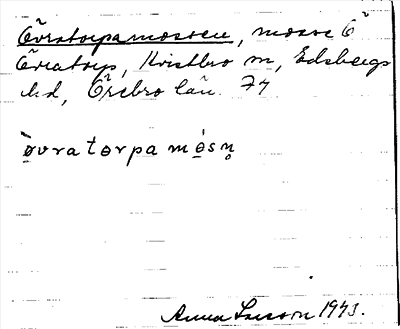 Överatorpamossen, mosse Ö
Överatorp, Kvistbro sn, Edsbergs
hd, Örebro län. 74
òvratɵrpa mɵ́sn̥
Anna Larsson 1943.